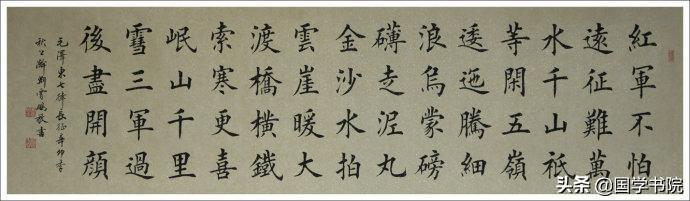 紅軍不怕
遠征難萬
水千山祇
等閑五嶺
逶迤騰細
浪烏蒙磅
礴走泥丸
金沙水拍
雲崖暖大
渡橋橫鐵
索寒更喜
岷山千里
雪三軍過
後盡開顏
毛澤東七律長征辛卯季
秋書
头条@国学书院